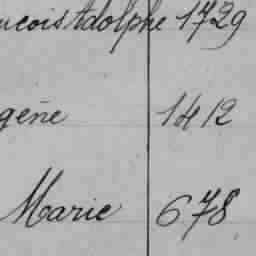 ucois Adolphe 1729
gène 1412
Marie 678